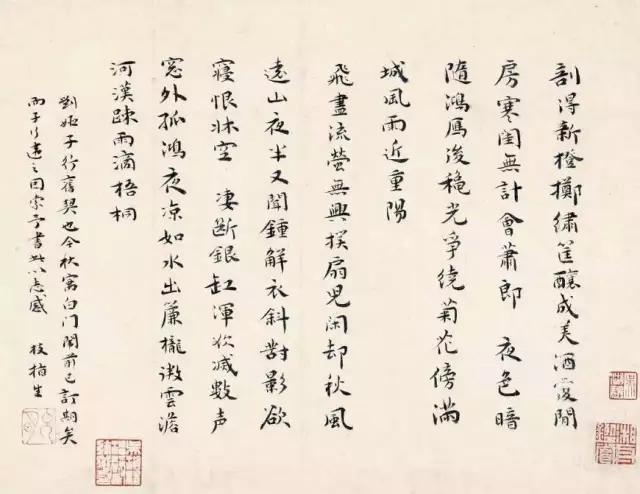 剖得新橙擲繡筐釀成美酒覆閒
房寒閨無計會蕭郎 夜色暗
隨鴻雁後穐光爭繞菊花傍滿
城風雨近重陽
飛盡流螢無興撲扇児閑却秋風
遠山夜半又聞鍾解衣斜對影欲
寝恨牀空 凄断銀缸渾欲滅數声
窓外孤鴻夜凉如水出簾櫳微雲澹
河漢踈雨滴梧桐
劉姬子行舊契也今秋寓白门前已訂期矣
而子行之因索予書此以志感 枝指生